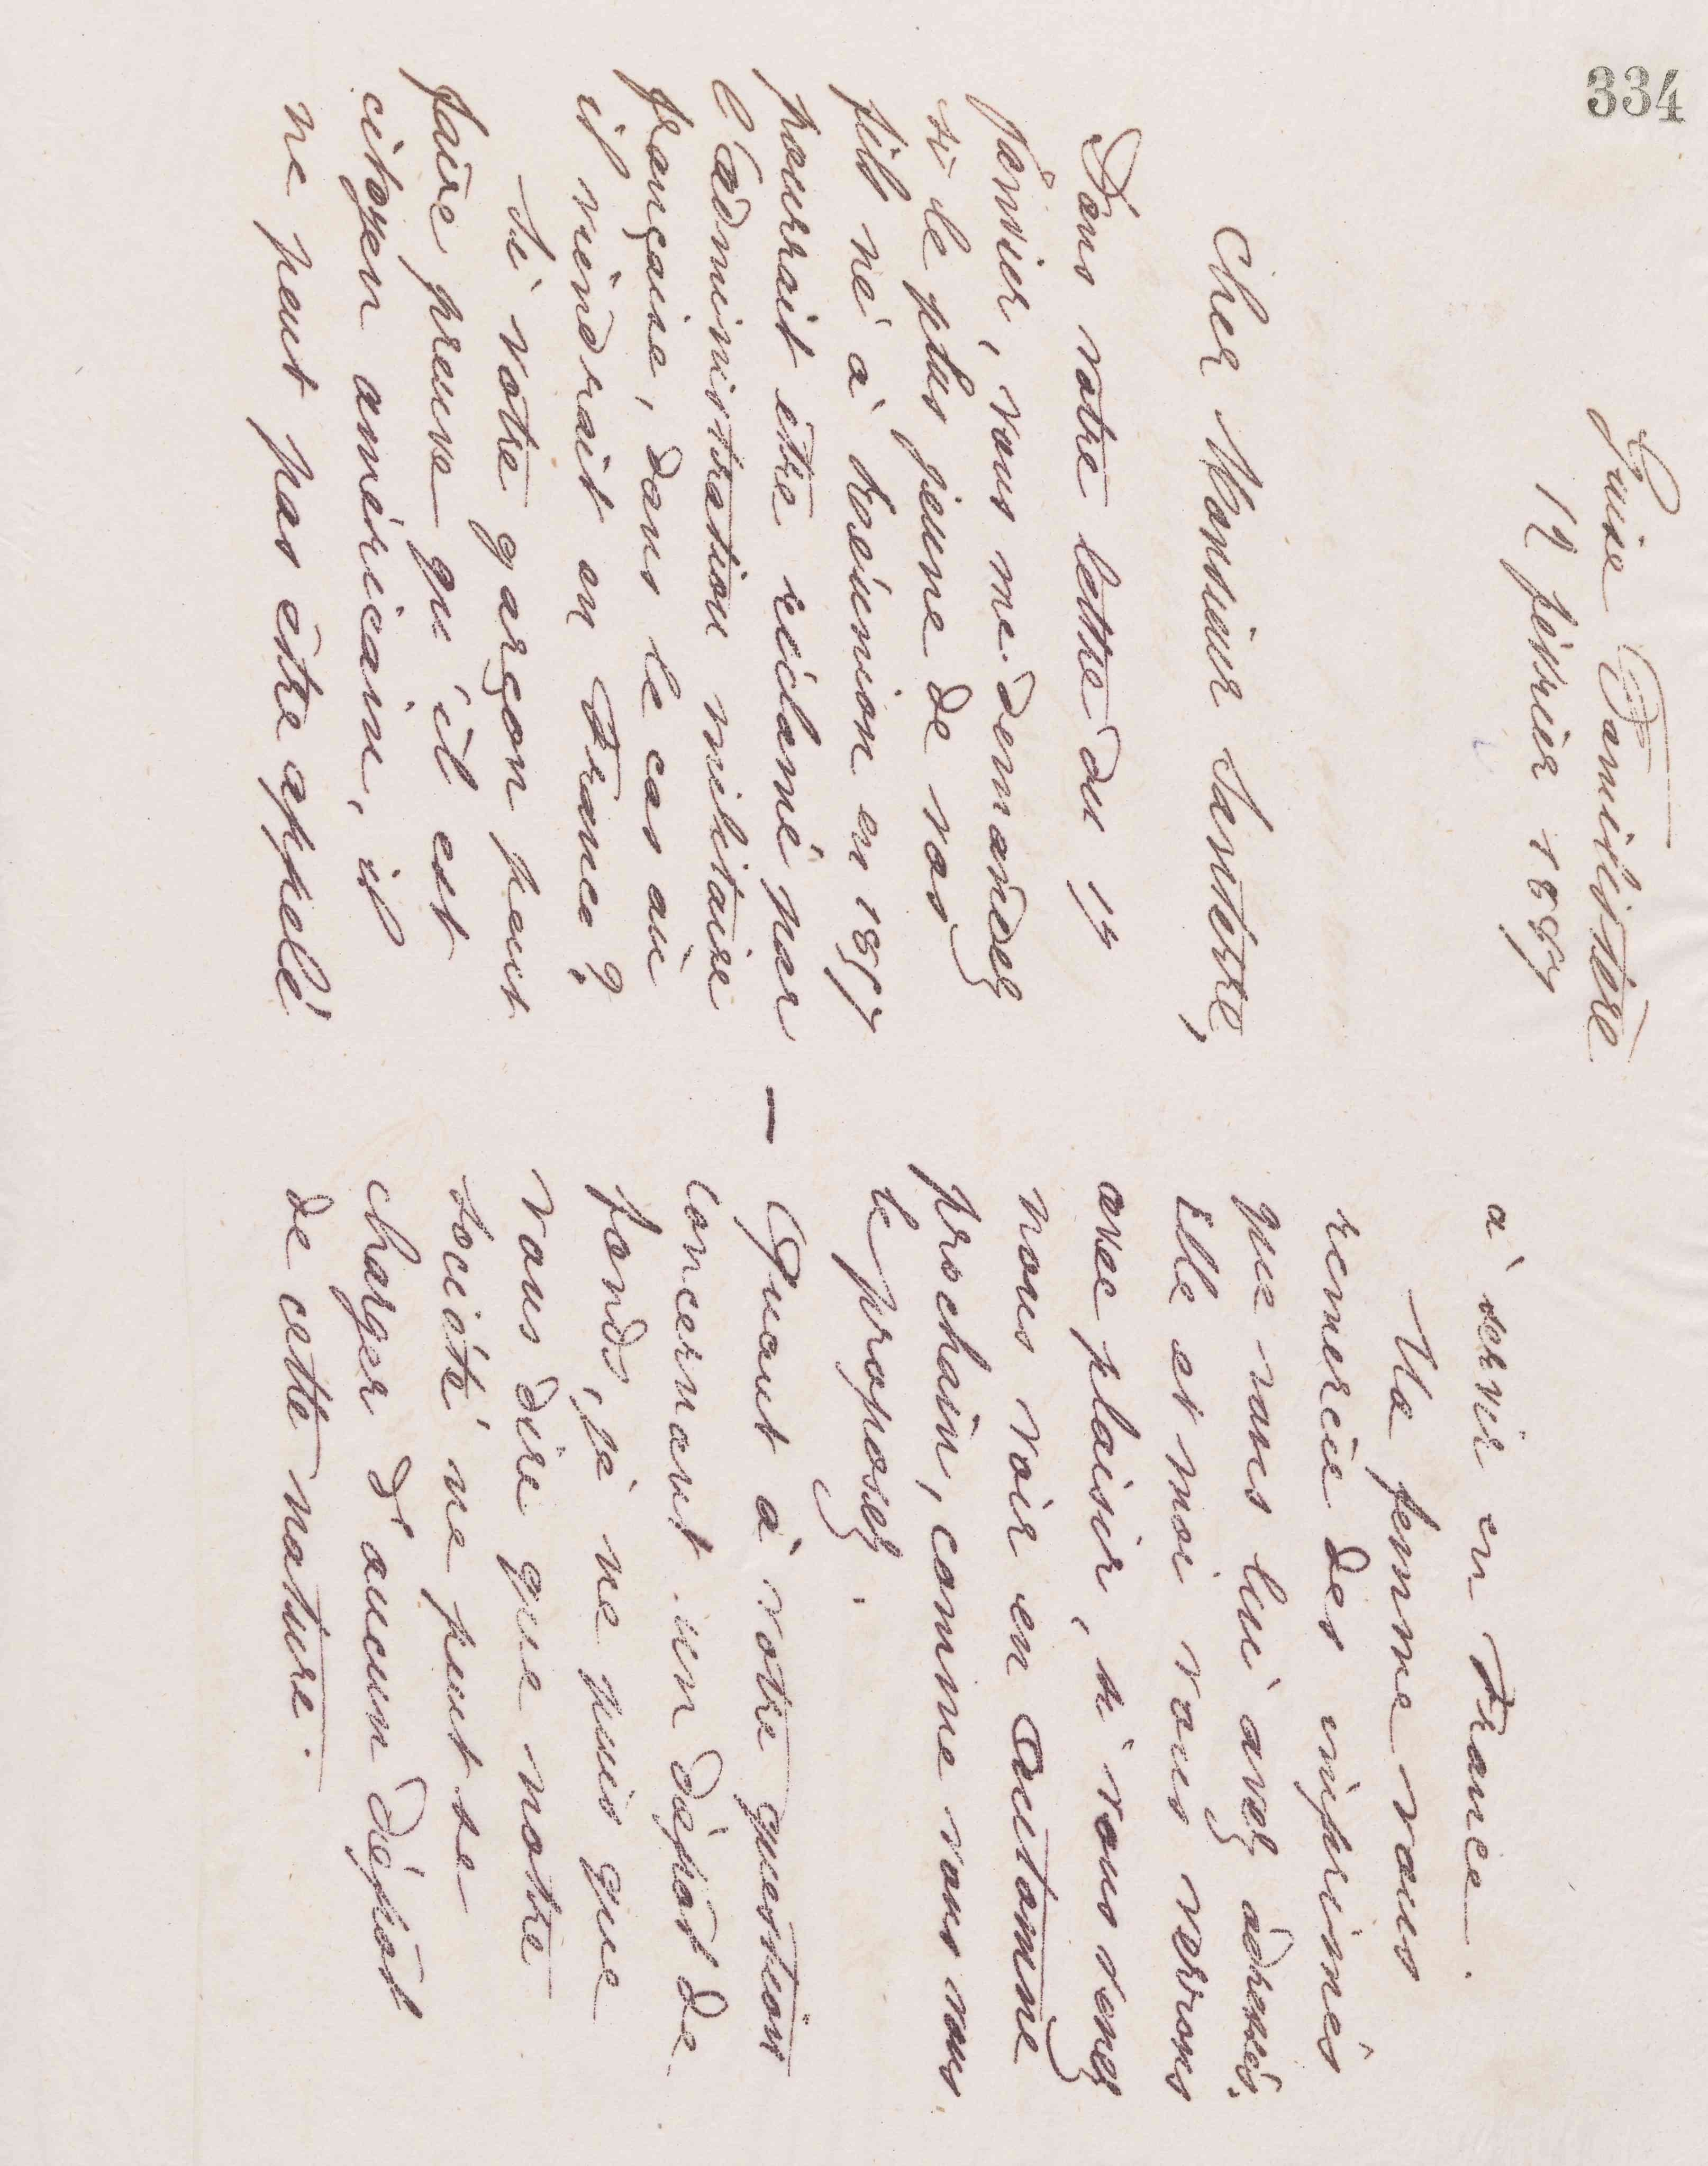 334
Guise Familistère
12 février 1887
Cher Monsieur Santerre,
Dans votre lettre du 17
janvier, vous me demandez
si le plus jeune de vos
fils né à Réunion en 1857
pourrait être réclamé par
l'administration militaire
française, dans le cas où
il viendrait en France ?
Si votre garçon peut
faire preuve qu'il est
citoyen américain, il
ne peut pas être appelé
à servir en France.
Ma femme vous
remercie des imprimés
que vous lui avez adressés.
Elle et moi vous verrons
avec plaisir, si vous venez
nous voir en Automne
prochain, comme vous vous
le proposez.
— Quant à votre question
concernant un dépôt de
fonds, je ne puis que
vous dire que notre
société ne peut se
charger d'aucun dépôt
de cette nature.